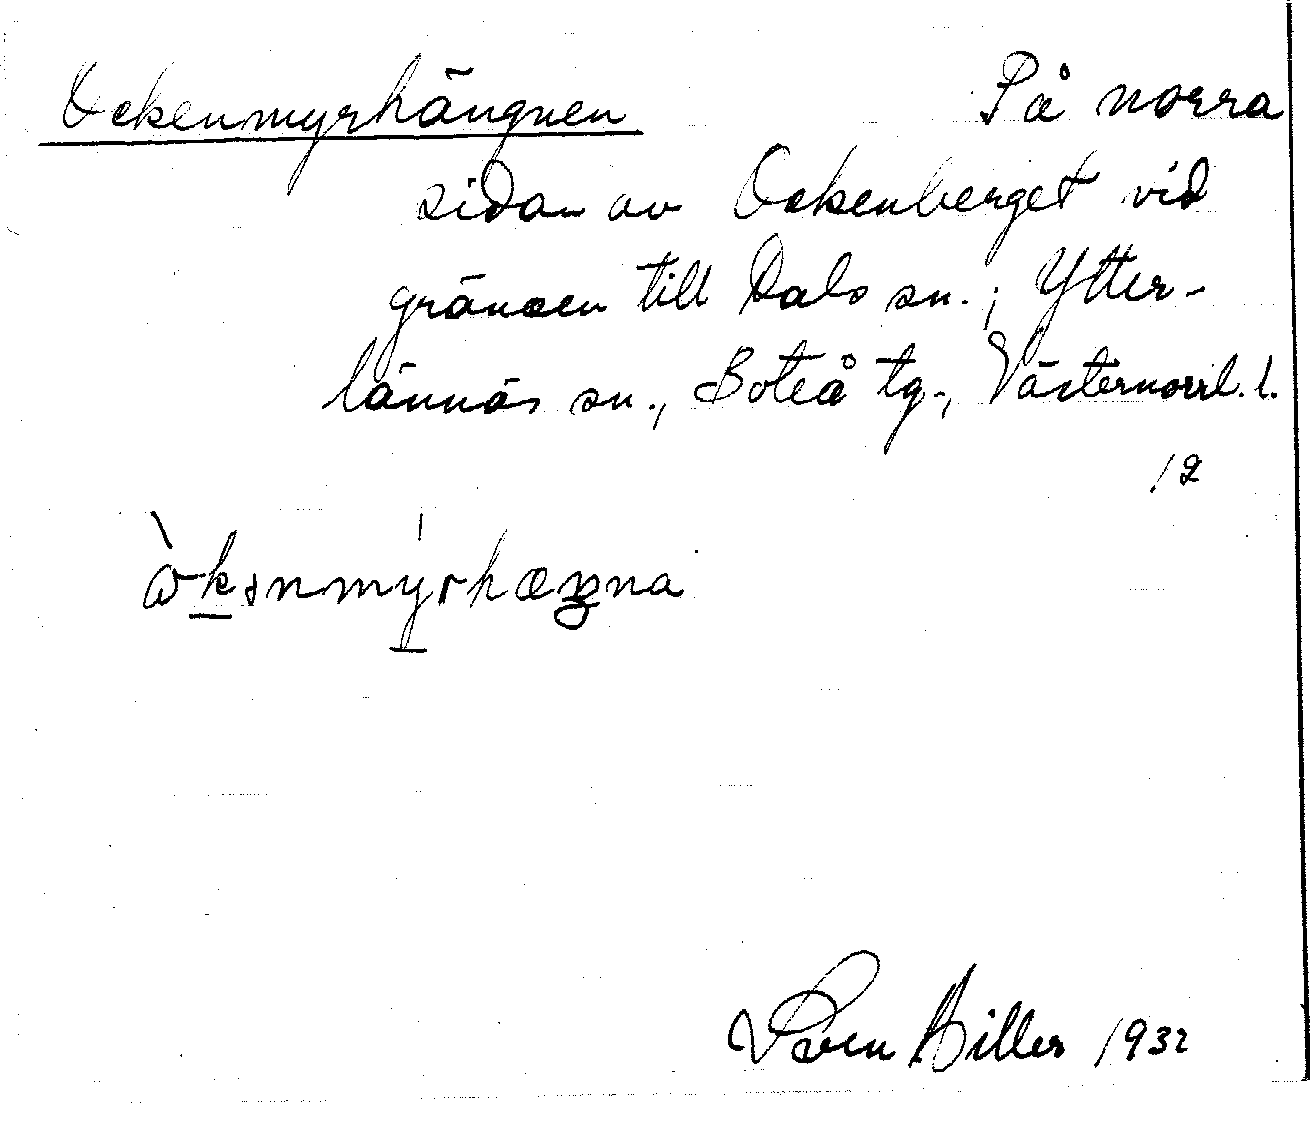 Ockenmyrhängnen På norra
sidan av Ockenberget vid
gränsen till Dals sn.; Ytter-
lännäs sn., Boteå tg., Västernorrl. l.
12
Sven Hiller 1932